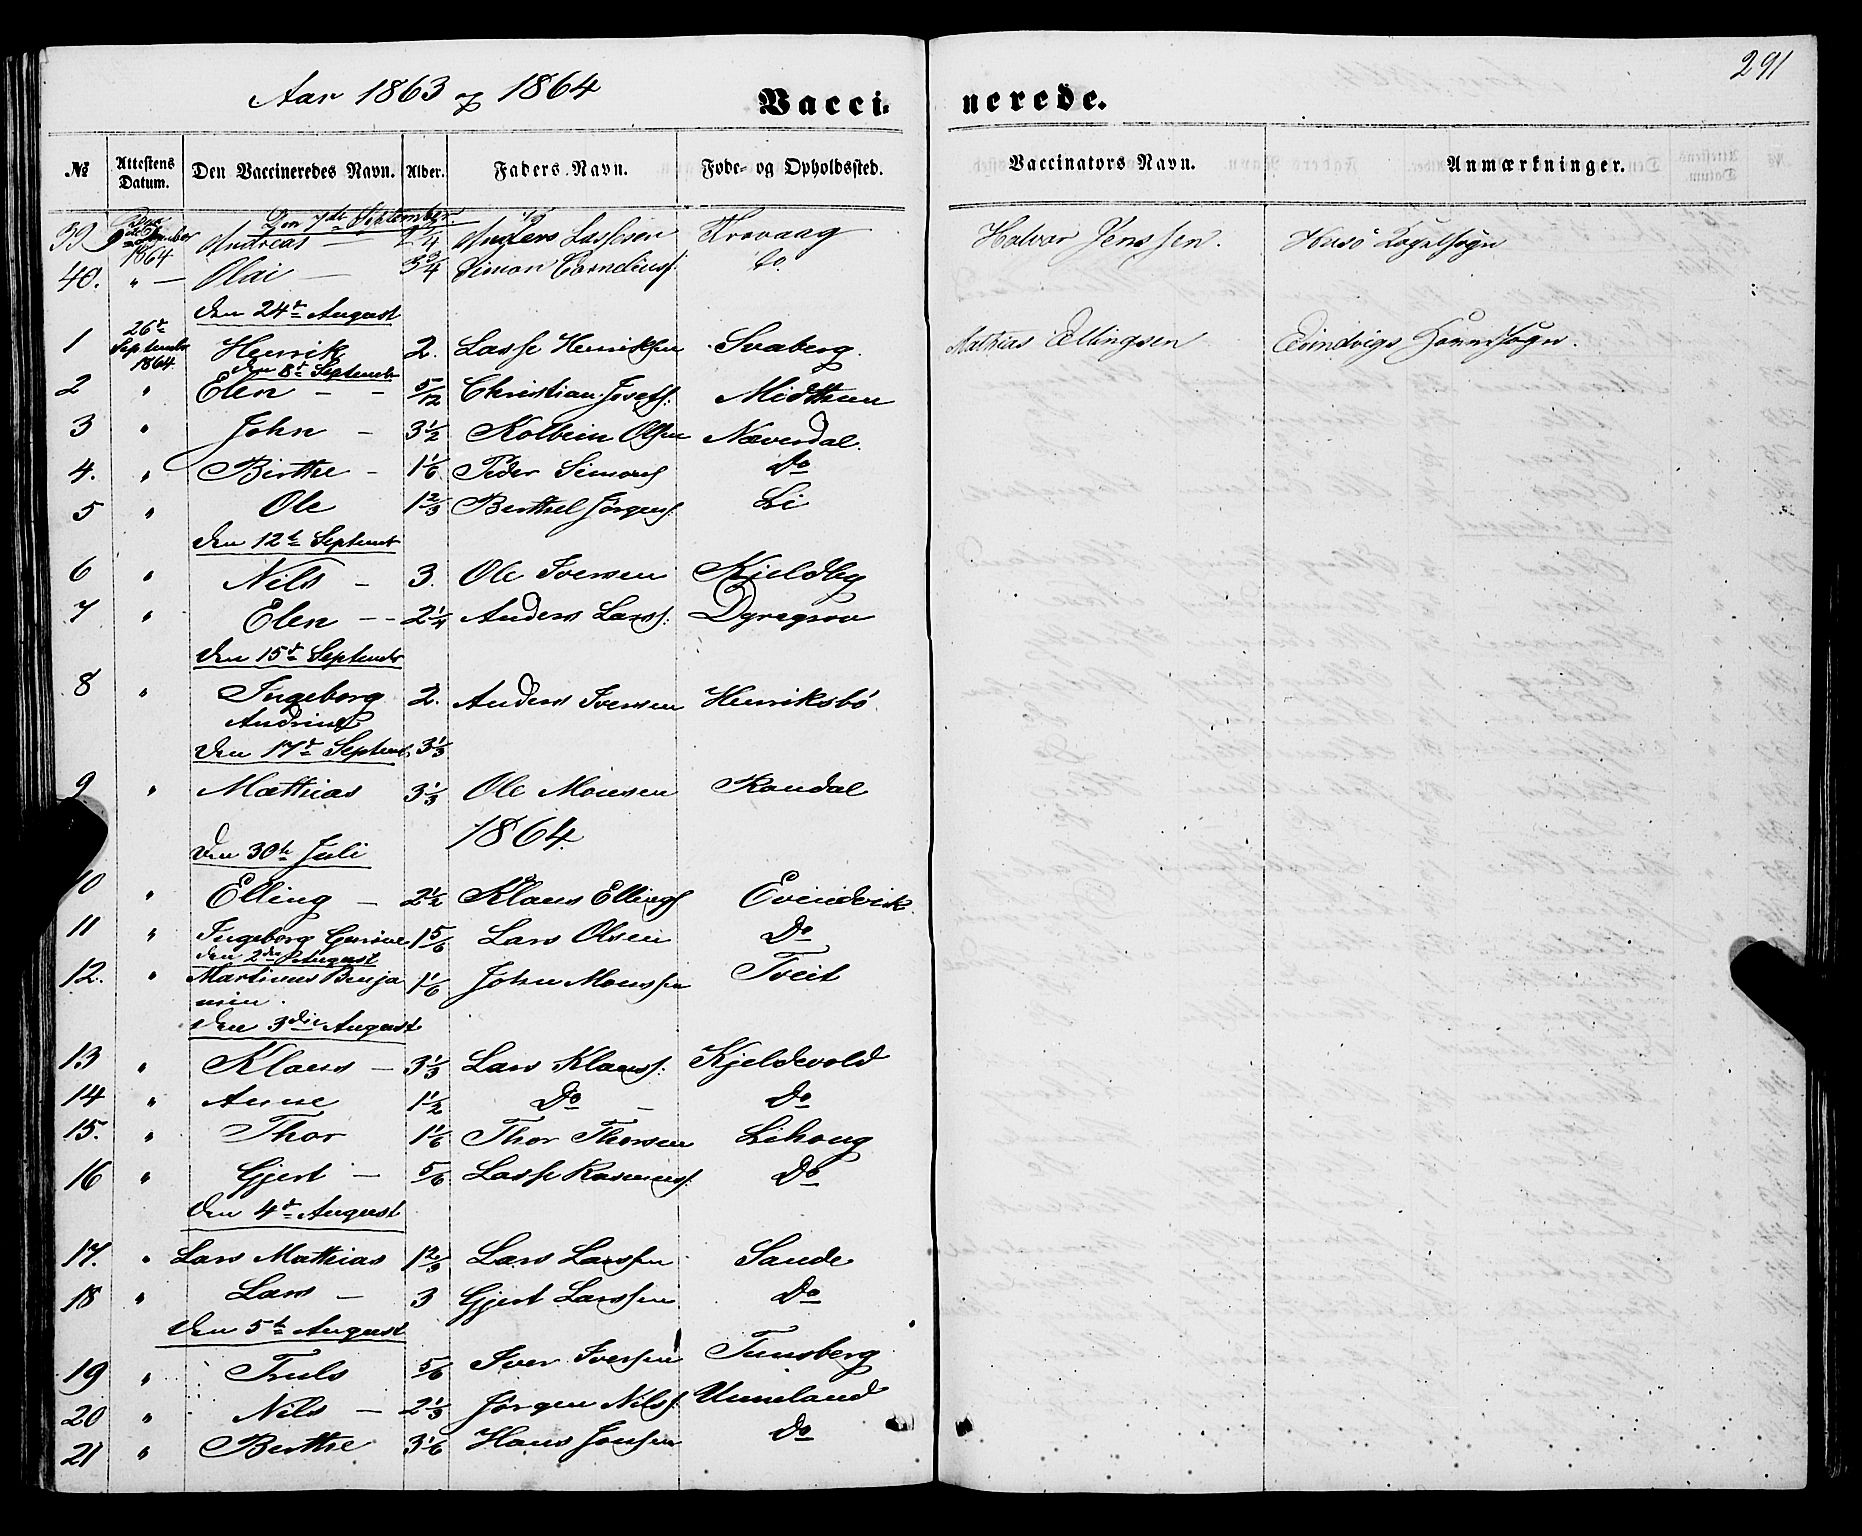 291
Aar 1863 og 1864
Vacci- nerede.
№ Attestens Datum. Den Vaccineredes Navn. Alder. Faders Navn. Føde- og Opholdssted. Vaccinators Navn. Anmærkninger.
Den 7de September
39 1864 Andreas — Anders Lassesen Kravaag Halvor Jenssen. Husö Sognesogn
40. " — Olai — 3/4 Simon Corneliuss. do
Den 24de August
1 26de September 1864 Henrik 2. Lasse Henriksen Svaberg. Mathias Ellingsen Evindvigs Hovedsogn.
Den 8de Septembr
2 " Elen — — 5/12 Christian Josefs: Midttun
3 " John — 3½ Kolbein Olsen Næverdal.
4. " Birthe — 1 1/6 Peder Simons Do
5 " Ole 1 2/3 Berthel Jörgens: Li
Den 12te Septembr
6 " Nils — 3. Ole Iversen Kjeldby
7 " Elen — — 2¼ Anders Larss: Dyregrov
Den 15de Septembr
8 " Ingeborg Andrine 2. Anders Iversen Henriksbö
Den 17de Septembr 3 1/3
9 " Matthias 3 1/3 Ole Monsen Randal
1864.
Den 30te Juli
10 " Elling — 2½ Klaus Ellings Evindvik
11 " Ingeborg 1 5/6 Lars Olsen Do
Den 2den August
12. " Martinus Benjamin. 1 1/6 John Monssen Tveit
Den 3die August
13 " Klaus — 3 1/3 Lars Klauss: Kjeldevold
14 " Anne 1½ Do — Do
15. " Thor 1 1/6 Thor Thorsen Lihoug
16 " Gjert — 5/6 Lasse Rasmuss. Do
Den 4de August
17. " Lars Mathias 1 2/3 Lars Larssen Sande
18 " Lars — 3 Gjert Larssen Do
Den 5te August
19 " Truls 5/6 Iver Iversen Tunsberg
20 " Nils — 2 1/3 Jörgen Nilss: Unneland
21 " Berthe 3 1/6 Hans Jonsen Do